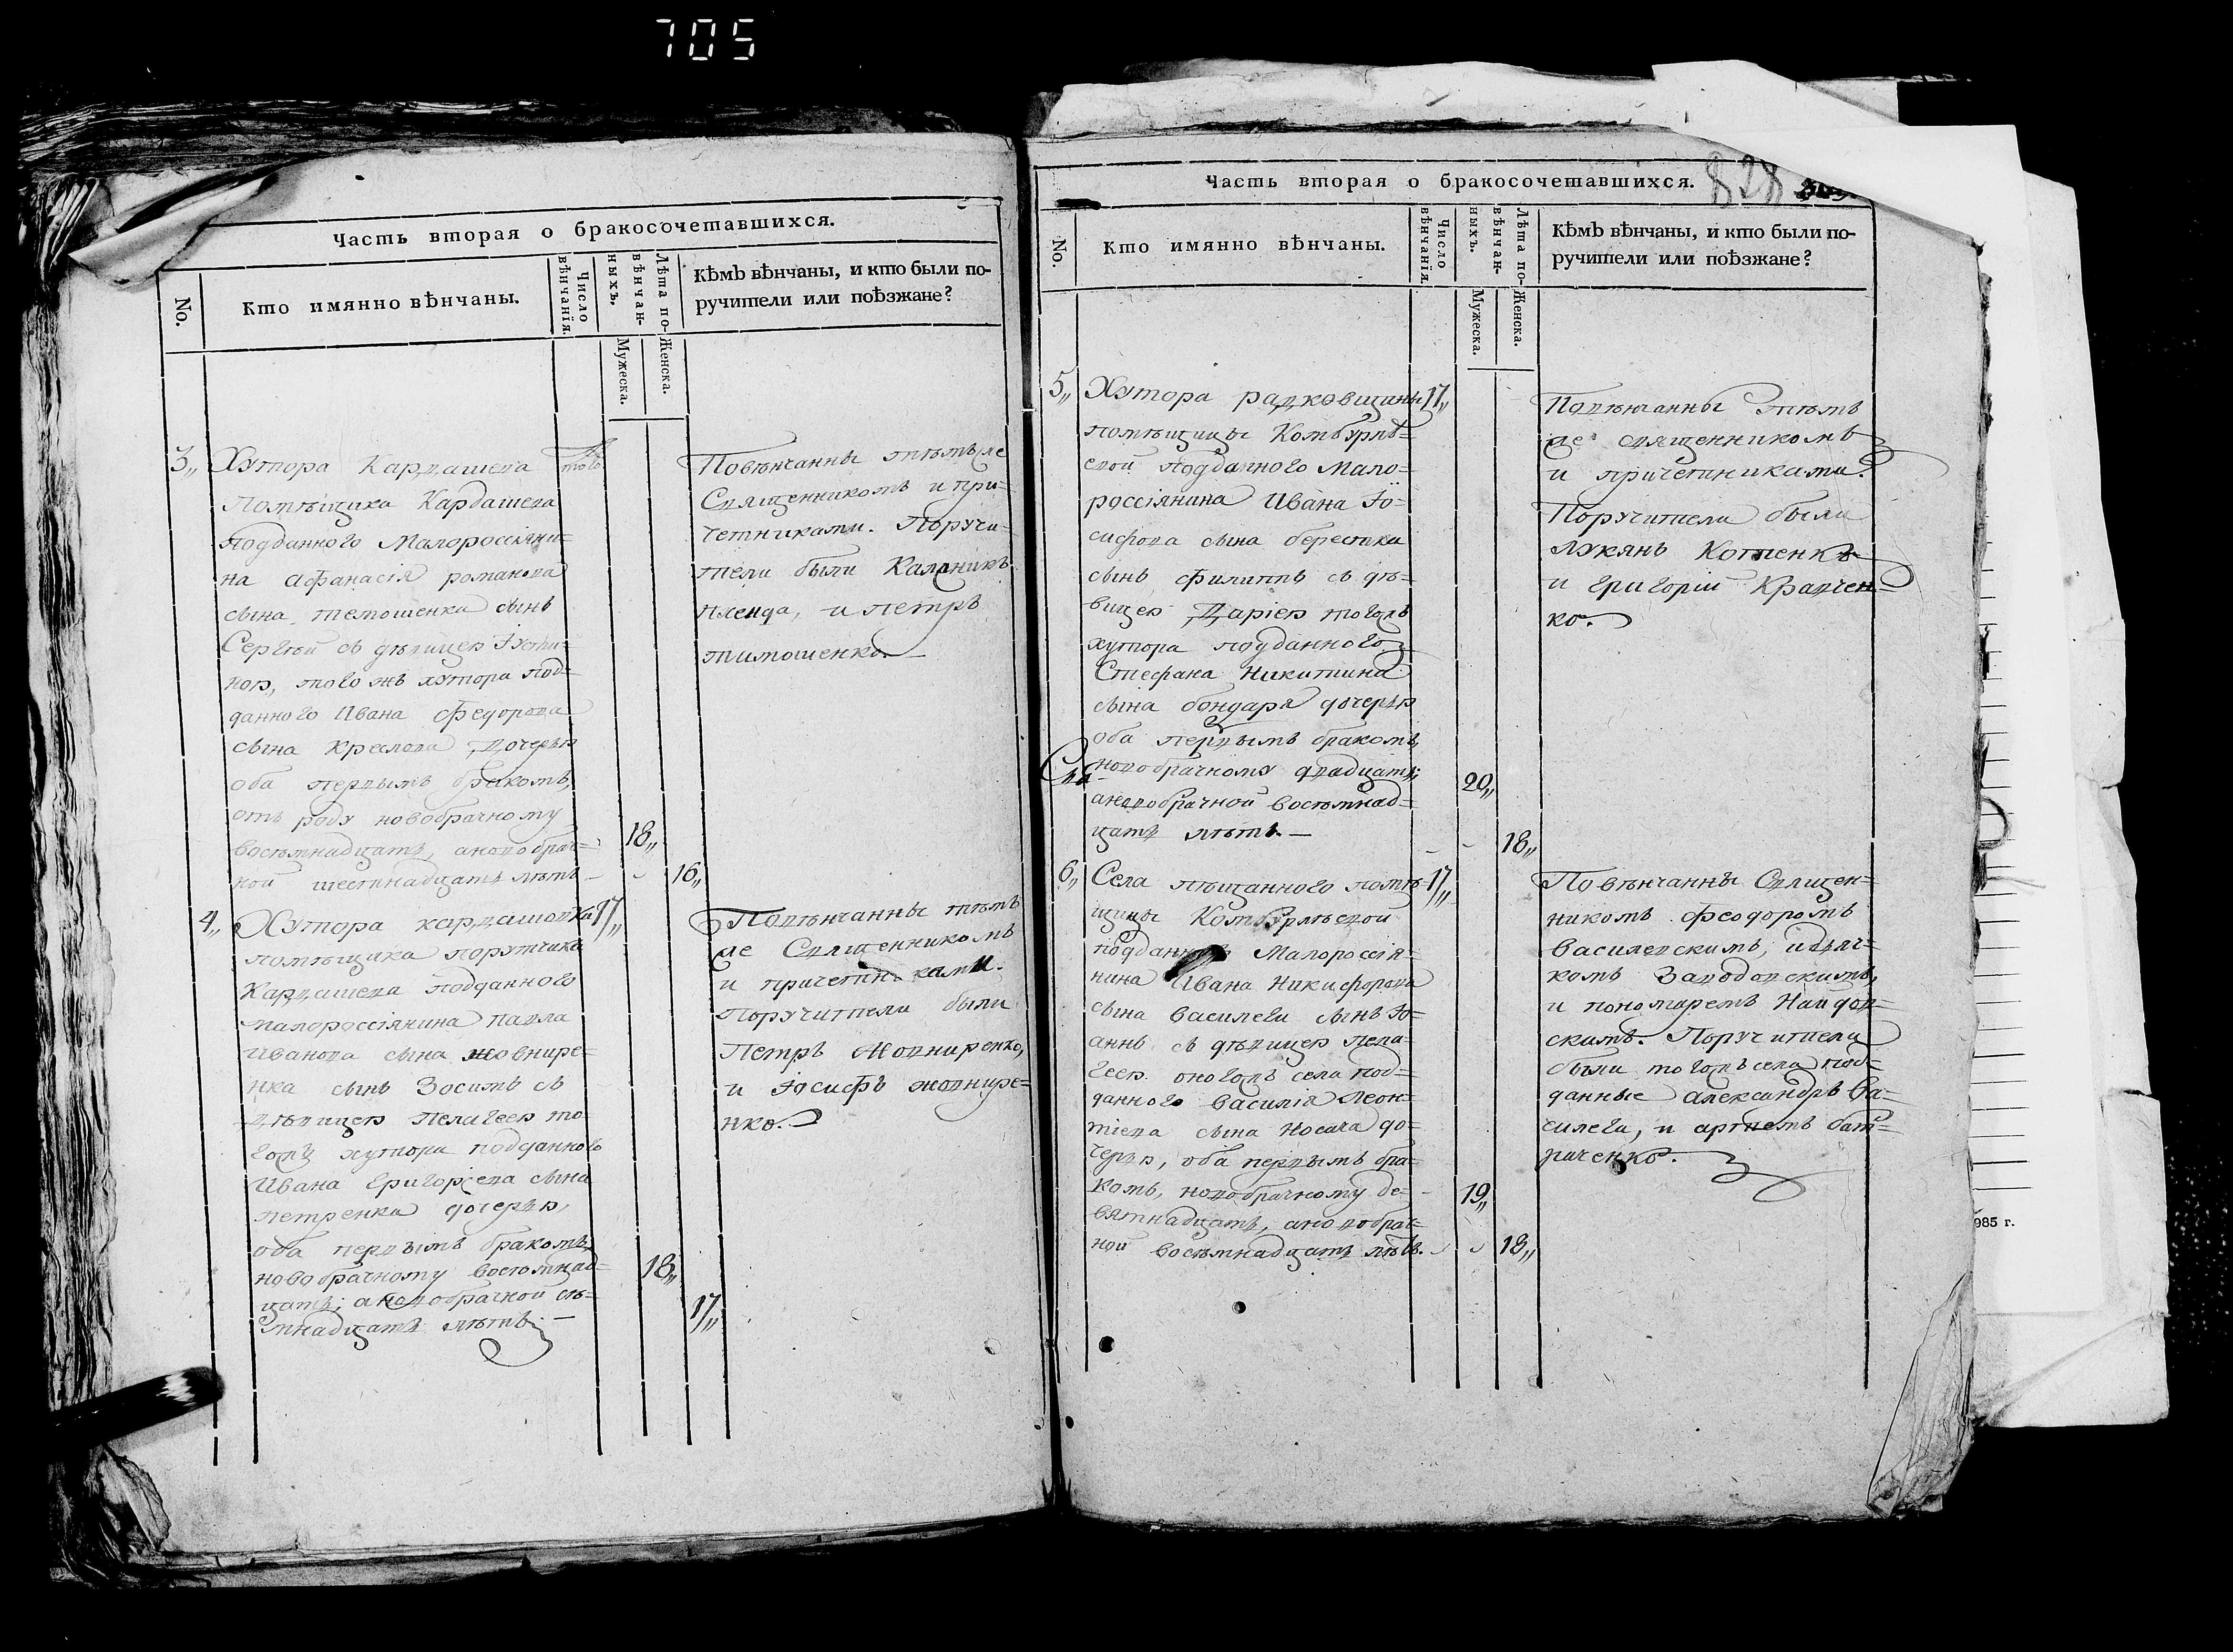 705
Часть вторая о бракосочетавшихся.
No.
Кто имянно вѣнчаны.
Число вѣнчанія.
Лѣта по-
вѣнчан-
ныхъ.
Мужеска.
Женска.
Кѣмъ вѣнчаны, и кто были по-
ручители или поѣзжане?
3,, Хутора Кардашева того
помѣщика Кардашева
подданного Малороссіяни-
на Афанасія романова
сына темошенка сынъ
Сергѣй съ дѣвицею Іусти-
ною, того жъ хутора под-
данного Ивана Федорова
сына Креслова дочерью
оба первымъ бракомъ,
отъ роду новобрачному
восѣмнадцать, а новобрач- 18,,
ной шестнадцать лѣтъ 16,,
Повѣнчанны тѣмъ же
Священникомъ и при-
четниками. Поручи-
тели были
и петръ
тимошенко.
4,, Хутора кардашовка 17,,
помѣщика порутчика
Кардашева подданного
малороссіянина павла
Иванова сына жовнире-
нка сынъ Зосимъ съ
дѣвицею пелагеею то-
гожъ хутора подданного
Ивана Григорiева сына
петренка дочерью,
оба первымъ бракомъ,
новобрачному восемнад- 18,,
цать; а новобрачной сѣ-
мнадцать лѣтъ. 17,,
Повѣнчанны тѣмъ
же Священникомъ
и причетниками.
Поручители были
Петръ Жовниренко,
и Іосифъ жовнире-
нко.
Часть вторая о бракосочетавшихся.
828
No.
Кто имянно вѣнчаны.
Число вѣнчанія.
Лѣта по-
вѣнчан-
ныхъ.
Мужеска.
Женска.
Кѣмъ вѣнчаны, и кто были по-
ручители или поѣзжане?
5,, Хутора радковщины 17,,
помѣщицы Комбурлѣ-
евой подданного Мало-
россіянина Ивана Іо-
сифова сына берестка
сынъ филиппъ съ дѣ-
вицею Даріею тогожъ
хутора подданного
Стефана Никитина
сына бондаря дочерью
оба первымъ бракомъ,
новобрачному двадцать; 20,,
а новобрачной восѣмнад-
цать лѣтъ. 18,,
Повѣнчанны тѣмъ
же священникомъ
и причетниками.
Поручители были
Лукянъ Котенко
и Григорій Кравчен-
ко.
6,, Села пѣщанного помѣ- 17,,
щицы Комбурлѣевой
Малороссія-
нина Ивана Никифорова
сына Василеги сынъ Іо-
аннъ съ дѣвицею пела-
геею оногожъ села под-
данного Василія Леон-
тіева сына Носача до-
черью, оба первымъ бра-
комъ, новобрачному де- 19,,
вятнадцать, а новобрач-
ной восѣмнадцать лѣтъ. 18,,
Повѣнчанны Священ-
никомъ Феодоромъ
Василевскимъ, и дьяч-
комъ Заводовскимъ,
и пономаремъ Найдов-
скимъ. Поручители
были тогожъ села под-
данные Александръ Ва-
силега, и артемъ
985 г.